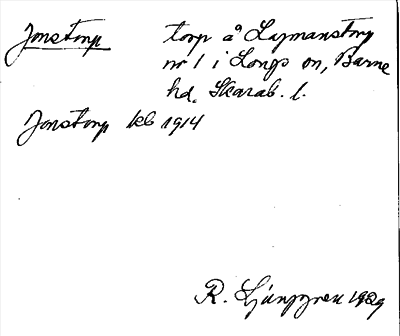 Jonstorp torp å Lagmanstorp
nr 1 i Longs sn, Barne
hd, Skarab. l.
Jonstorp kb 1914
R. Ljunggren 1929